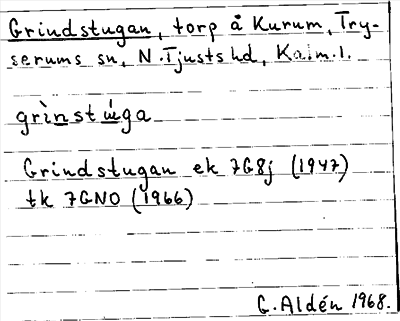 Grindstugan, torp å Kurum, Try-
serums sn, N. Tjusts hd, Kalm. l.
grìnstúga
Grindstugan ek 7G8j (1947)
tk 7GNO (1966)
G. Aldén 1968.